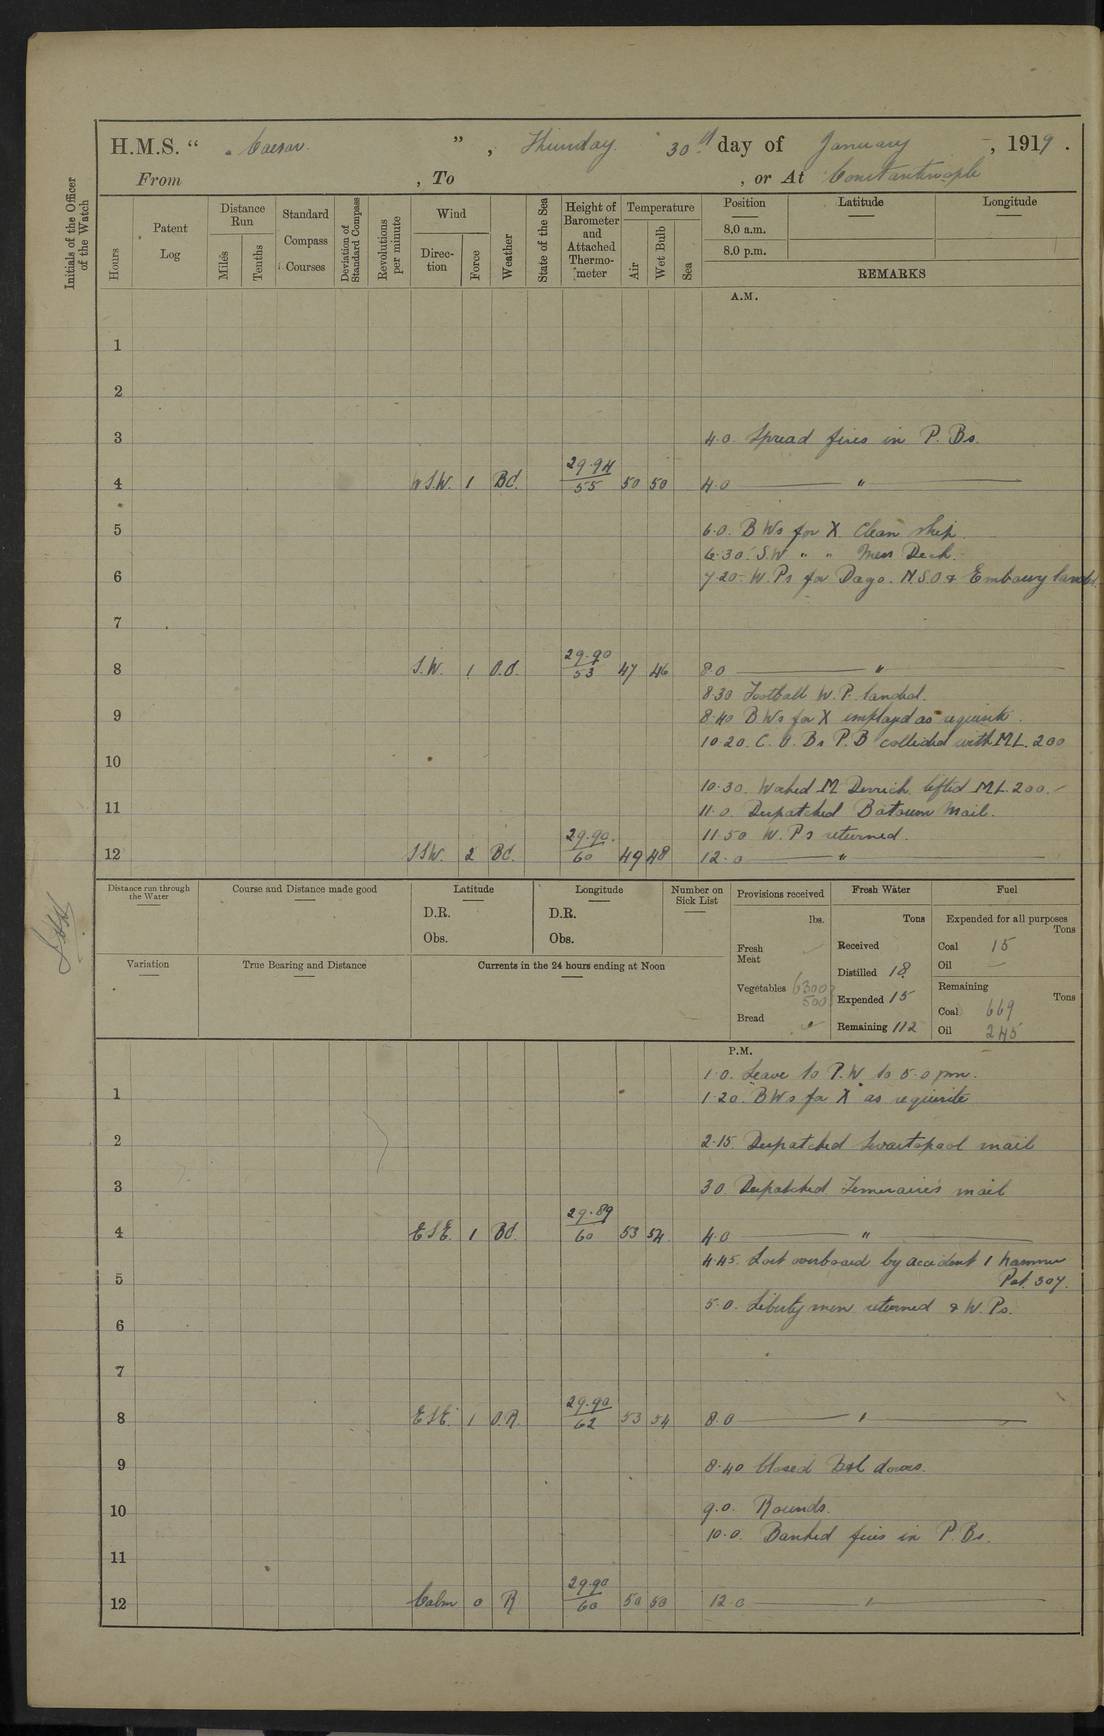 H.M.S. " Caesar. " , Thursday 30th day of January , 1919 .
From , To , or At Constantinople
Initials of the Officer of the Watch
Hours
Patent Log
Distance Run
Miles
Tenths
Standard Compass Courses
Deviation of Standard Compass
Revolutions per minute
Wind
Direction
Force
Weather
State of the Sea
Height of Barometer and Attached Thermometer
Temperature
Air
Wet Bulb
Sea
Position Latitude Longitude
8.0 a.m.
8.0 p.m.
REMARKS
A.M.
1
2
3 4.0. Spread fires in P. Bs.
4 S.W. 1 Bc. 29.94 55 50 50 4.0 "
5 6.0. B Ws for X Clean ship
6.30. S.W " " Mess Deck.
6 7.20. W.Ps for Dago. N.S.O. & Embassy landed.
7
8 S.W. 1 O.C. 29.90 53 47 46 8.0 "
8.30 Football W.P. landed.
9 8.40 B Ws for X employed as requisite.
10.20. C. O. Bs P.B collided with M.L. 200
10
10.30. Worked M Derrick lifted M.L. 200.
11 11.0. Despatched Batoum Mail.
11.50 W. Ps returned.
12 SSW. 2 Bc. 29.90. 60 49 48 12.0 "
Distance run through the Water
Course and Distance made good
Latitude
D.R.
Obs.
Longitude
D.R.
Obs.
Number on Sick List
Provisions received
lbs.
Fresh Meat
Vegetables 6300 500
Bread
Fresh Water
Tons
Received
Distilled 18
Expended 15
Remaining 112
Fuel
Expended for all purposes
Tons
Coal 15
Oil —
Remaining
Tons
Coal 669
Oil 245
Variation
True Bearing and Distance
Currents in the 24 hours ending at Noon
P.M.
1.0. Leave to P.W. to 5.0 pm.
1 1.20. B Ws for X as requisite
2 2.15. Despatched Swartopool mail
3 3.0 Despatched Temeraire's mail
4 ESE. 1 Bc. 29.89 60 53 54 4.0 "
4.45. Lost overboard by accident 1 hammer
5 Pat. 307.
5.0. Liberty men returned & W.Ps.
6
7
8 ESE. 1 O.R. 29.90 62 53 54 8.0 "
9 8.40 Closed doors.
10 9.0. Rounds.
10.0. Banked fires in P. Bs.
11
12 Calm 0 R 29.90 60 50 50 12.0 "